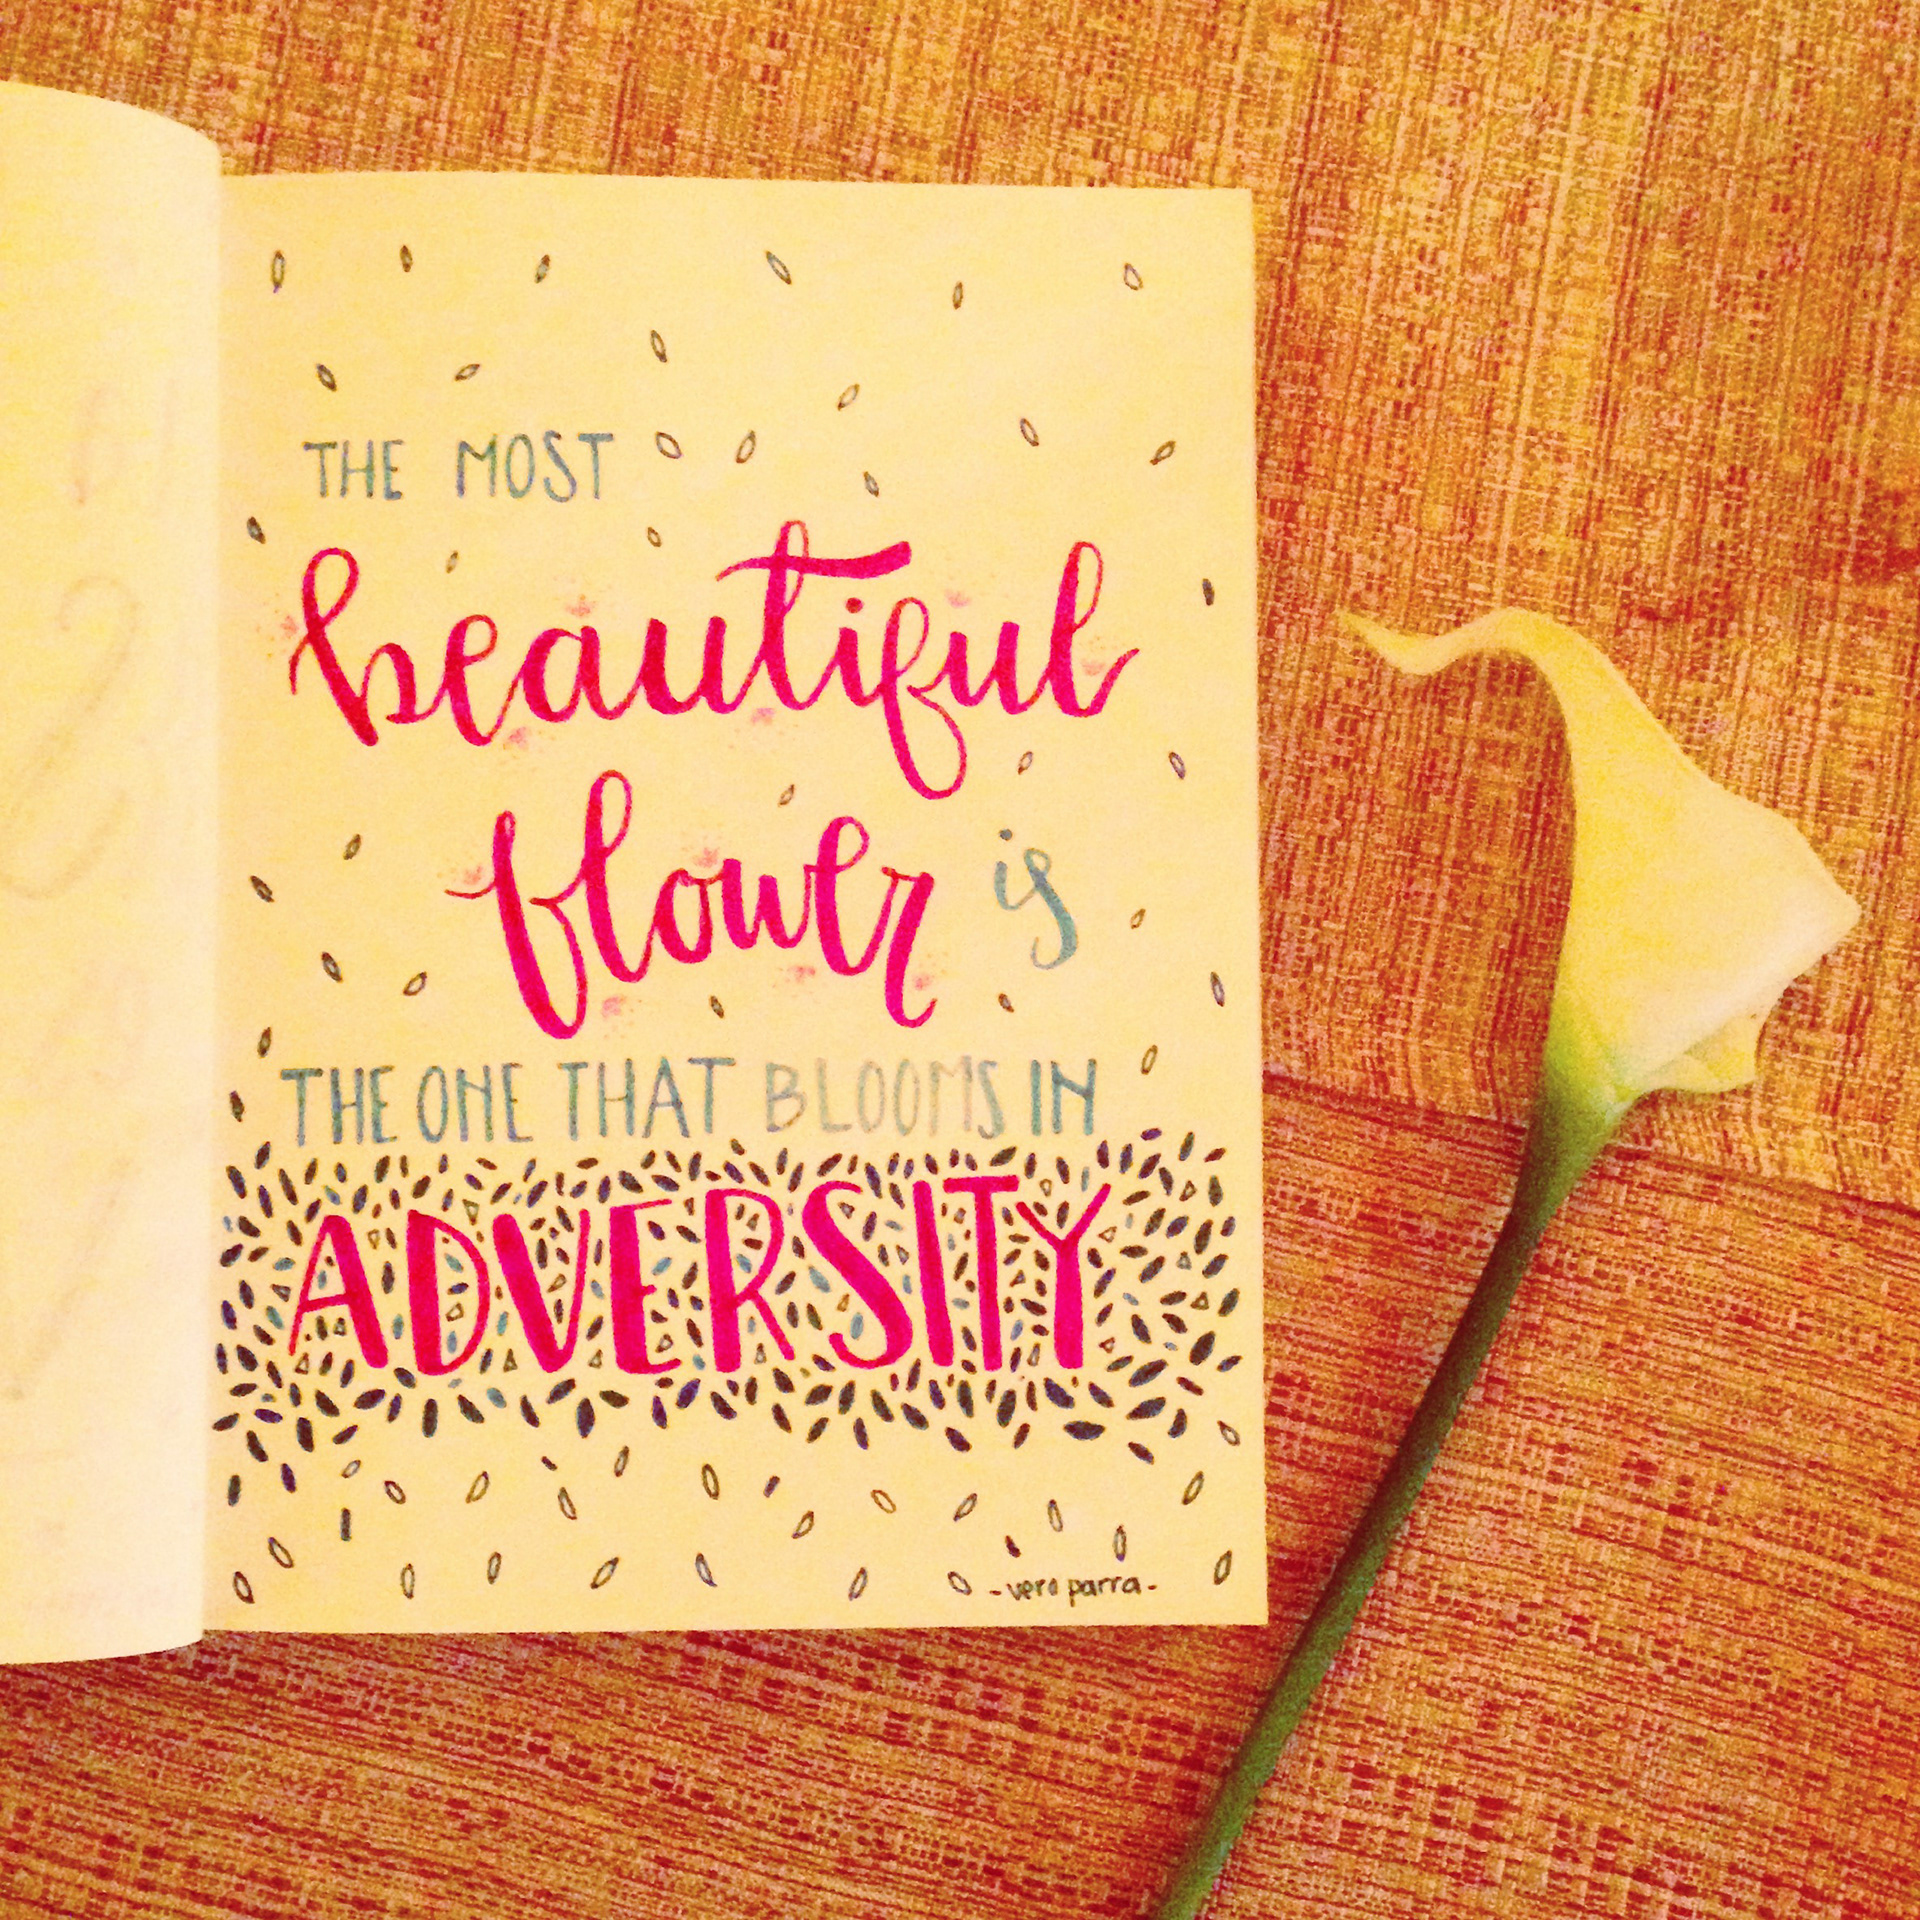 THE MOST
beautiful
flower is
THE ONE THAT BLOOMS IN
ADVERSITY
-vero parra-